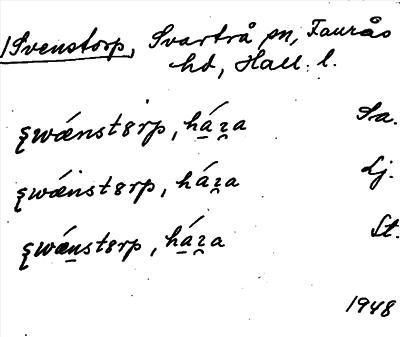 /Svenstorp, Svartrå sn, Faurås
hd, Hall. l.
ʂwǽnstɜrp, há̱ʐa Sa.
ʂwǽnstɜrp, háʐa Lj.
ʂwǽṉstɜrp, há̱ʐa St.
1948